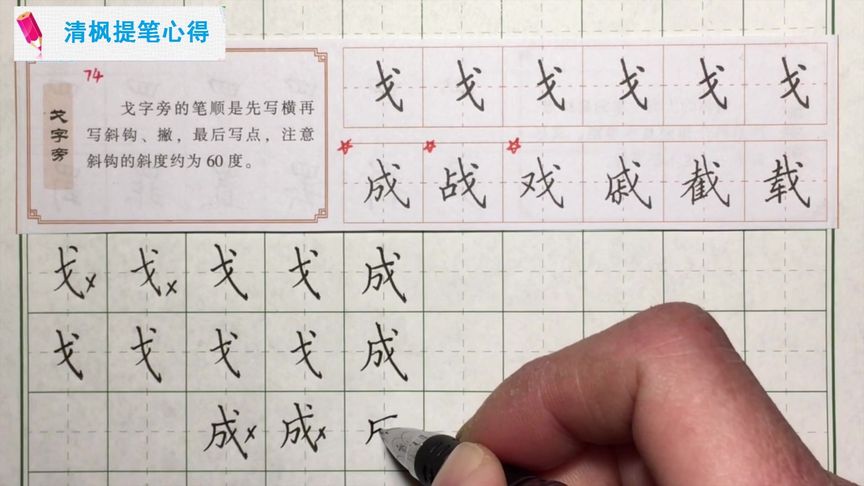 清枫提笔心得
74
戈字旁
戈字旁的笔顺是先写横再
写斜钩、撇，最后写点，注意
斜钩的斜度约为60度。
戈 戈 戈 戈 戈 戈
成 战 戏 戚 截 载
戈× 戈× 戈 戈 成
戈 戈 戈 戈 成
成× 成×